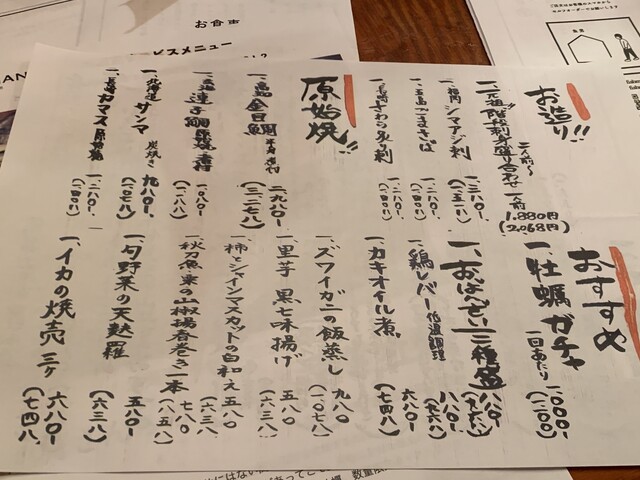 お造り!!
一、元祖 階段刺身盛り合わせ 二人前〜 一人前 1,880円 (2,068円)
一、福岡 シマアジ刺 一、三八〇-
一、五島 ごまさば 一、二八〇- (一、四〇八)
一、長崎 さわら炙り刺 一、二八〇- (一、四〇八)
原始焼!!
金目鯛 二、九八〇- (三、二七八)
連子鯛 一、〇八〇- (一、一八八)
一、北海道 サンマ 炭焼き 九八〇- (一、〇七八)
一、長崎 カマス 原始焼 一、二八〇- (一、四〇八)
おすすめ
一、牡蠣ガチャ 一回あたり 一、〇〇〇- (一、一〇〇)
一、おばんざい三種盛 八八〇- (九六八)
一、鶏レバー 低温調理 八八〇- (九六八)
一、カキオイル煮 六八〇- (七四八)
一、ズワイガニの飯蒸し 九八〇 (一、〇七八)
一、里芋 黒七味揚げ 五八〇 (六三八)
一、柿とシャインマスカットの白和え 五八〇 (六三八)
一、秋刀魚の山椒揚春巻き一本 七八〇 (八五八)
一、旬野菜の天麩羅 五八〇 (六三八)
一、イカの焼売 三ヶ 六八〇- (七四八)
お食事
ビスメニュー